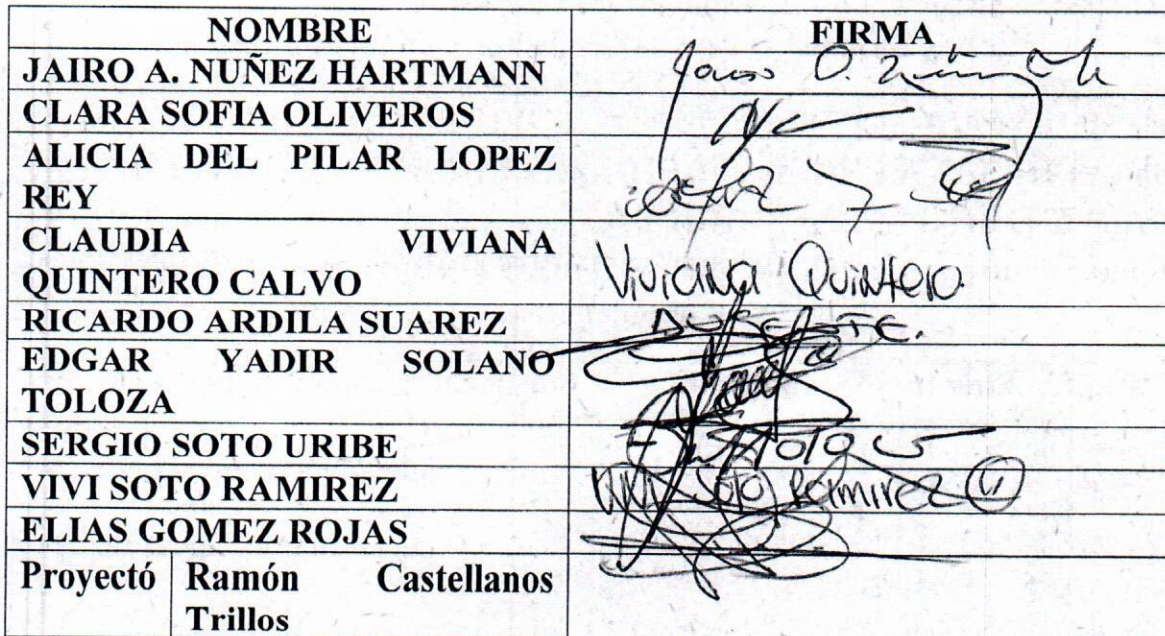 NOMBRE FIRMA
JAIRO A. NUÑEZ HARTMANN
CLARA SOFIA OLIVEROS
ALICIA DEL PILAR LOPEZ
REY
CLAUDIA VIVIANA
QUINTERO CALVO Viviana Quintero.
RICARDO ARDILA SUAREZ
EDGAR YADIR SOLANO
TOLOZA
SERGIO SOTO URIBE
VIVI SOTO RAMIREZ Vivi Soto Ramirez
ELIAS GOMEZ ROJAS
Proyectó Ramón Castellanos
Trillos